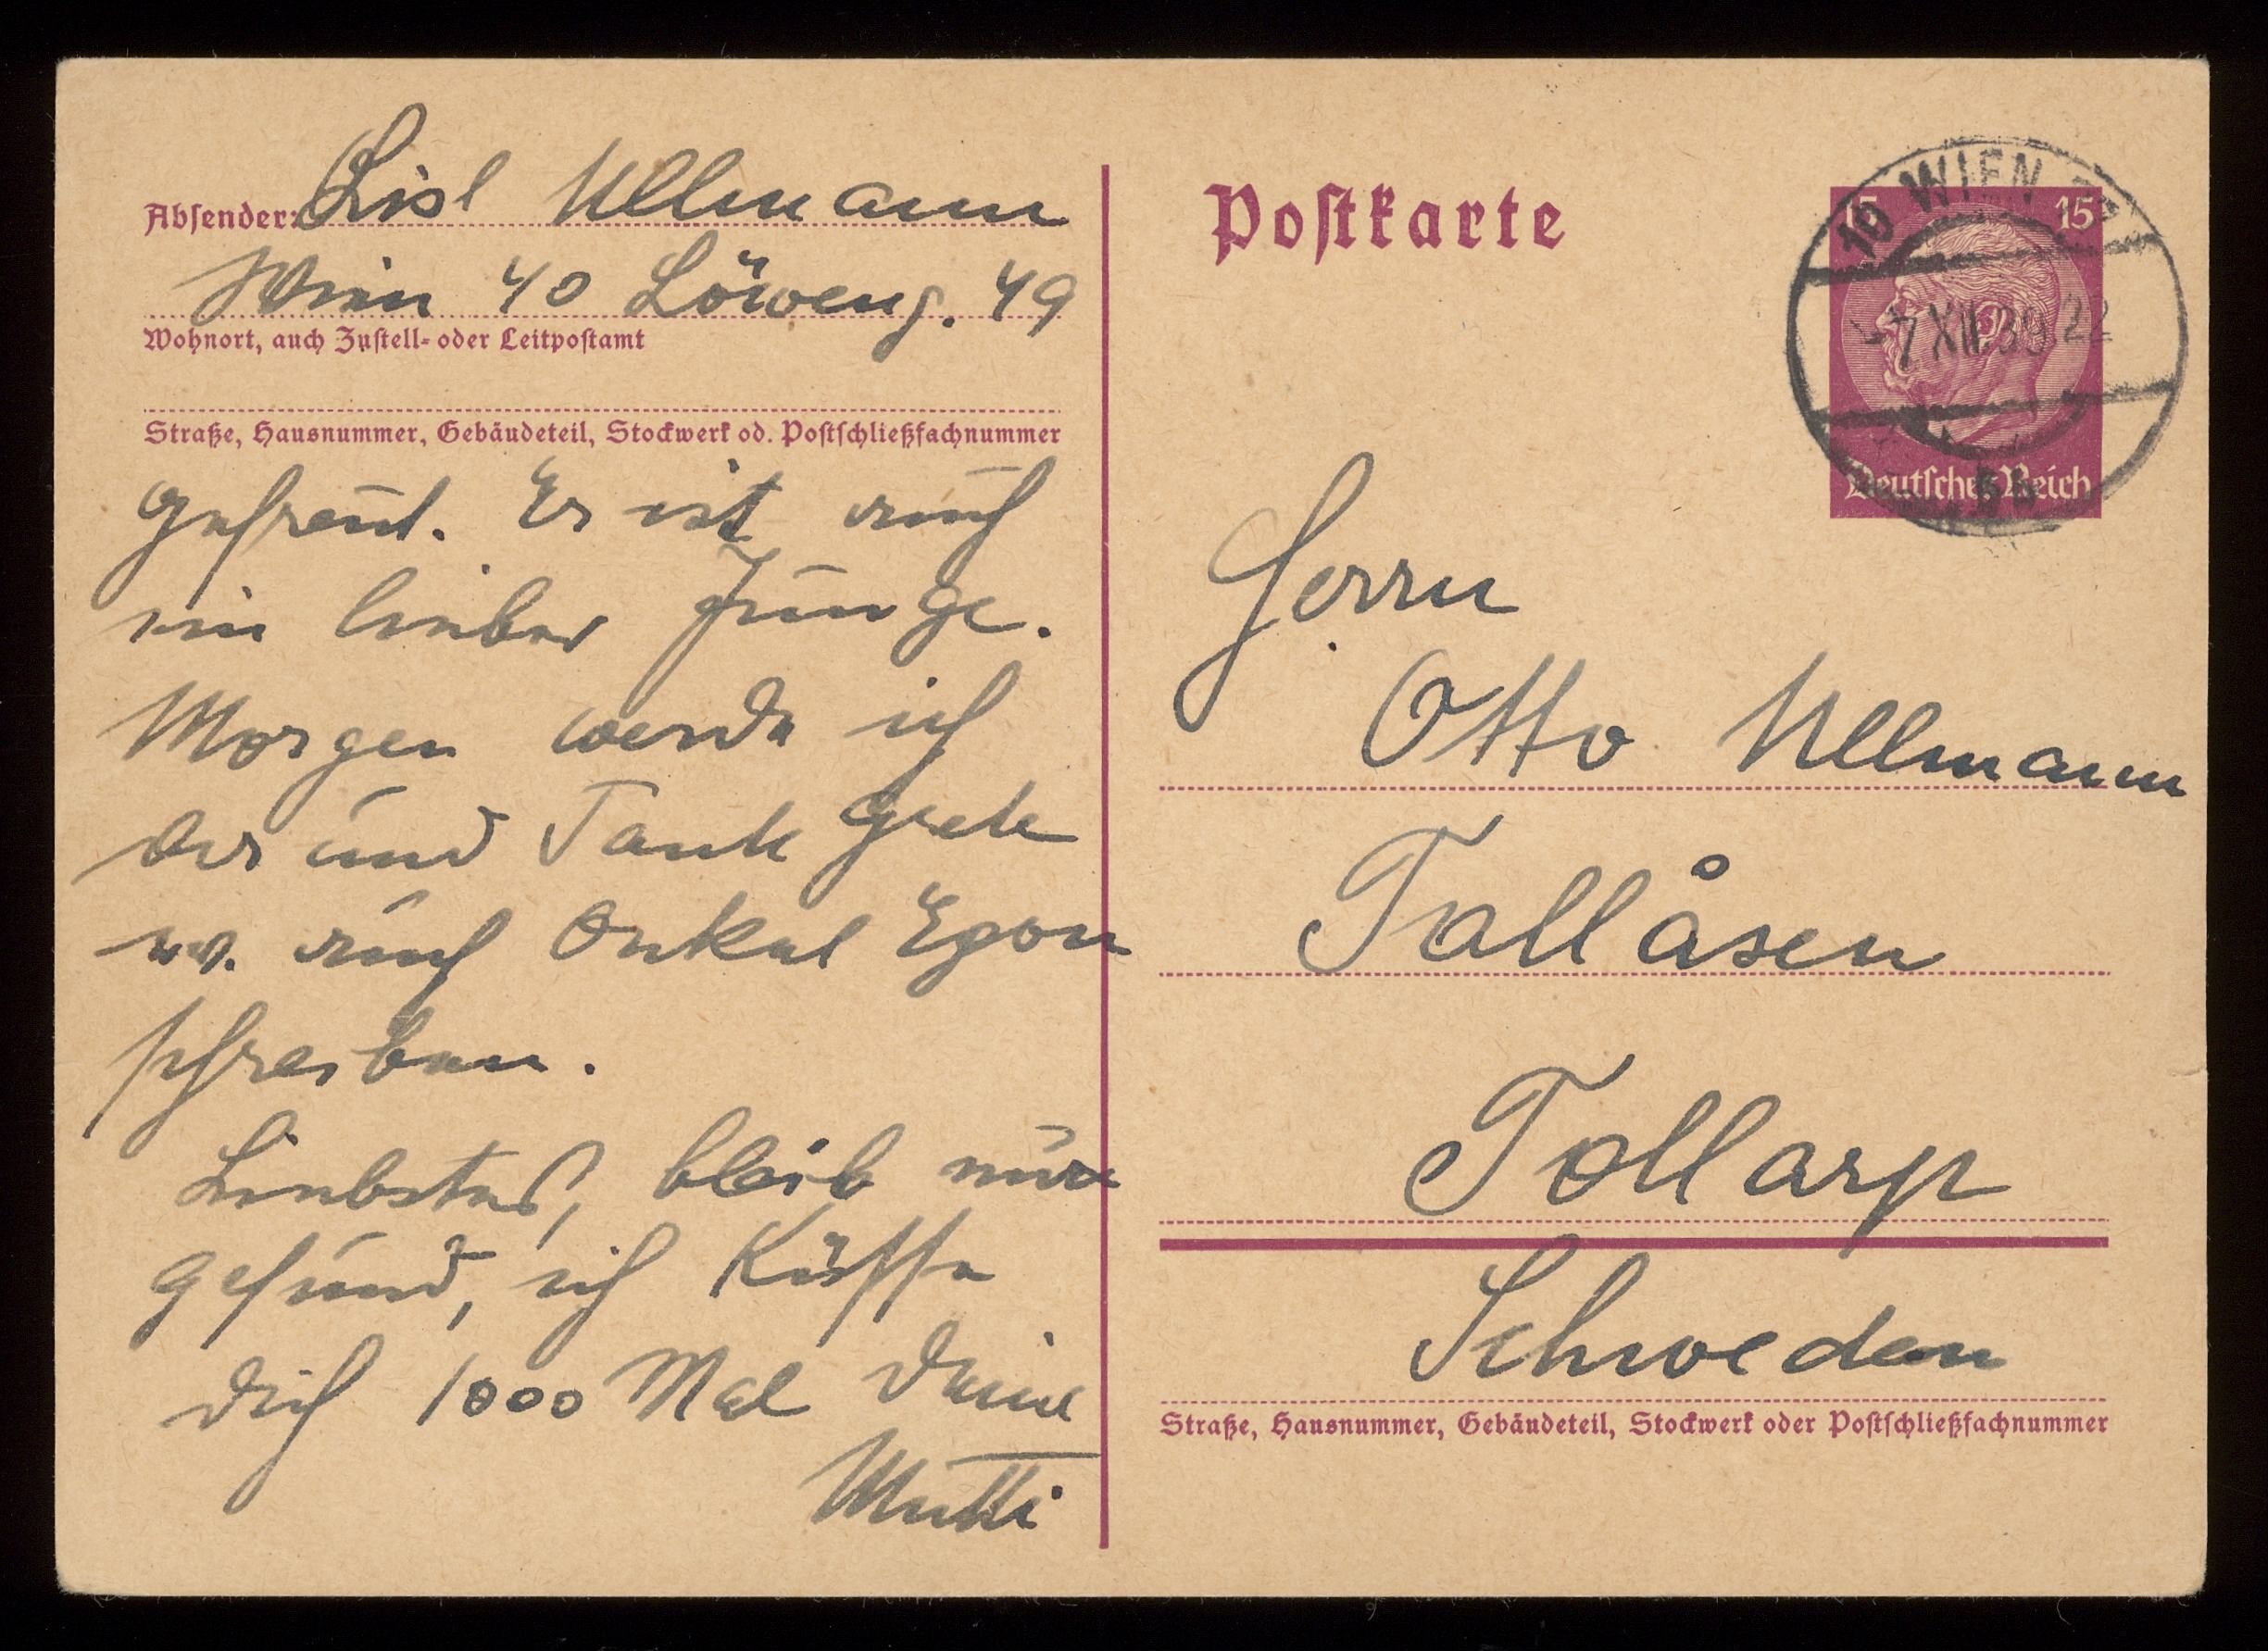 Absender: Lisl Ullmann
Wien 40 Löweng. 49
Wohnort, auch Zustell- oder Leitpostamt
Straße, Hausnummer, Gebäudeteil, Stockwerk od. Postschließfachnummer
gefreut. Er ist auch
ein lieber Junge.
Morgen werde ich
Dir und Tante Grete
u. auch Onkel Egon
schreiben.
Liebstes, bleib nur
gesund, ich küsse
Dich 1000 Mal Deine
Mutti
Postkarte
10 WIEN
15 15
-7.XII.39 22
Deutsches Reich
Herrn
Otto Ullmann
Tallåsen
Tollarp
Schweden
Straße, Hausnummer, Gebäudeteil, Stockwerk oder Postschließfachnummer